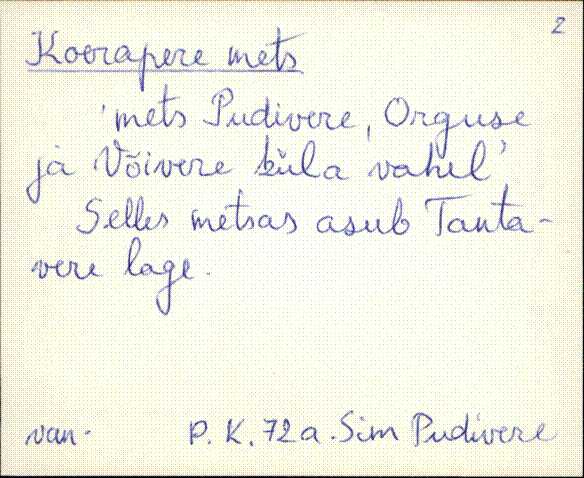 2
Koorapere mets
'mets Pudivere, Orguse
ja Võivere küla vahel'
Selles metsas asub Tanta-
vere lage.
van. P. K. 72 a. Sim Pudivere